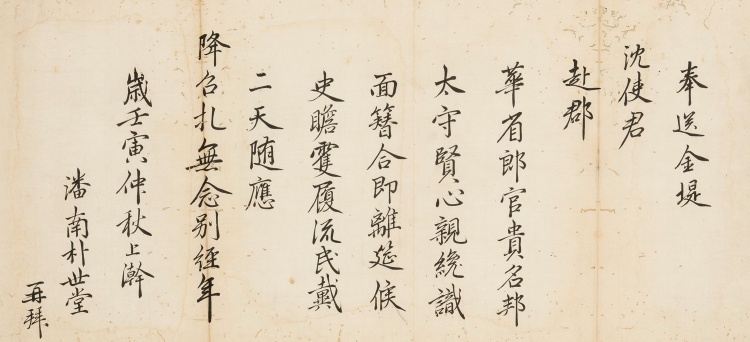 奉送金堤
沈使君
赴郡
華省郎官貴名邦
太守賢心親纔識
面簪合即離筵候
史瞻雙履流民戴
二天随應
降召札無念别經年
歲壬寅仲秋上澣
潘南朴世堂
再拜